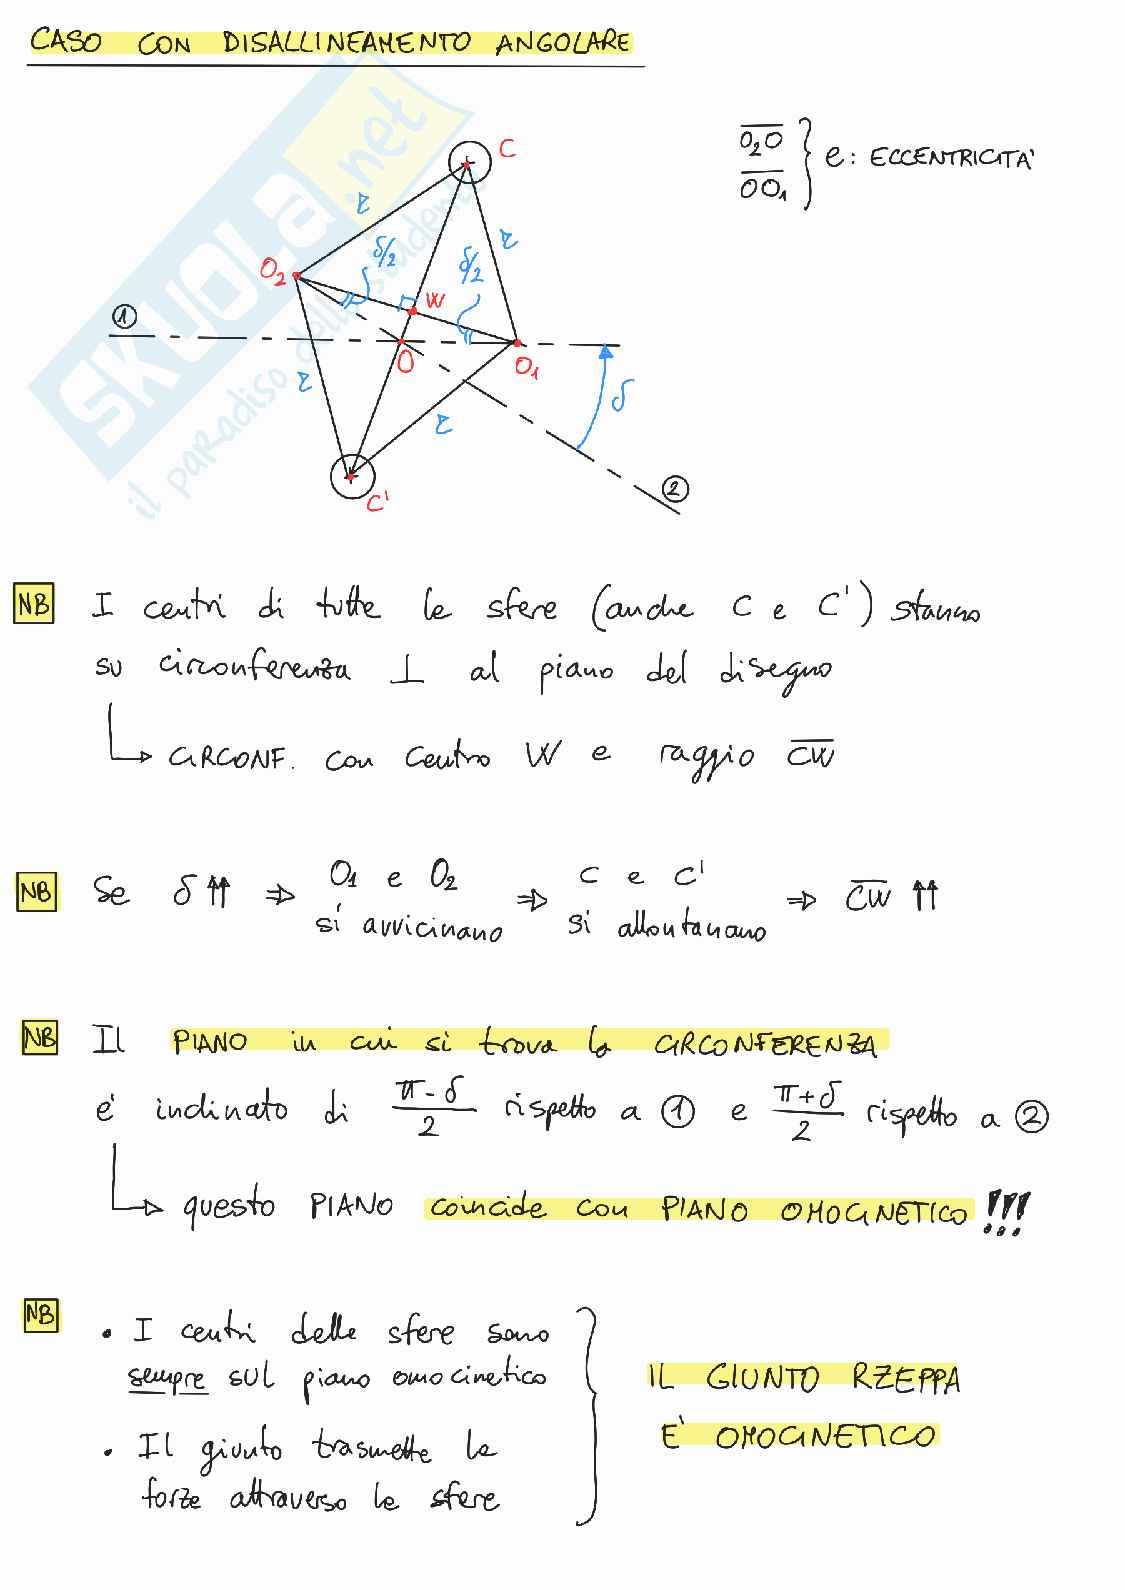 CASO CON DISALLINEAMENTO ANGOLARE
O₂O
OO₁ } e: ECCENTRICITA'
C
r
δ/2
r
δ/2
O₂
W
1
O
O₁
r
δ
r
2
C'
SKUOLA.net
il paradiso dello studente
NB I centri di tutte le sfere (anche C e C') stanno
su circonferenza ⊥ al piano del disegno
↳ CIRCONF. con centro W e raggio C̅W̅
NB Se δ ↑↑ ⇒ O₁ e O₂ si avvicinano ⇒ C e C' si allontanano ⇒ C̅W̅ ↑↑
NB Il PIANO in cui si trova la CIRCONFERENZA
e' inclinato di (π-δ)/2 rispetto a ① e (π+δ)/2 rispetto a ②
↳ questo PIANO coincide con PIANO OMOCINETICO !!!
NB
• I centri delle sfere sono
sempre sul piano omocinetico
• Il giunto trasmette le
forze attraverso le sfere
IL GIUNTO RZEPPA
E' OMOCINETICO